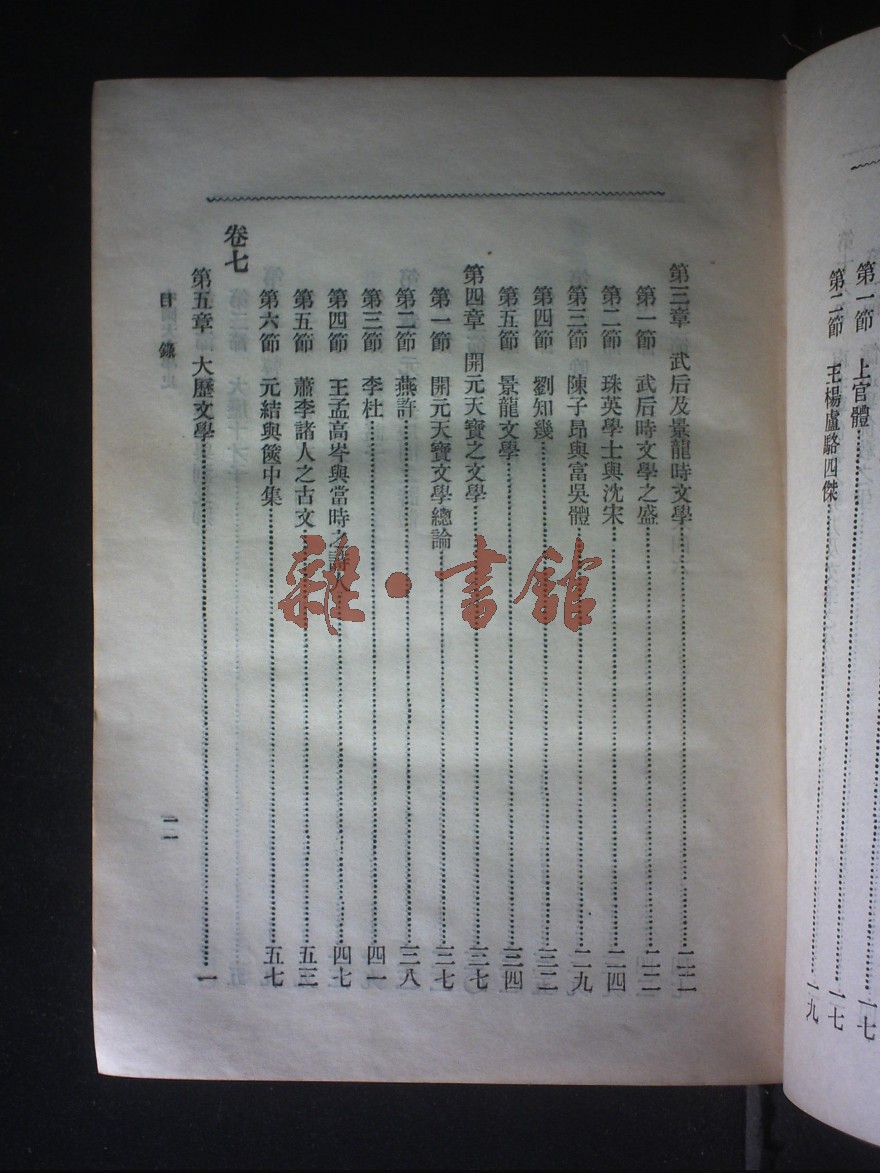 第一節 上官體 一七
第二節 王楊盧駱四傑 一七
一九
第三章 武后及景龍時文學 二二
第一節 武后時文學之盛 二二
第二節 珠英學士與沈宋 二四
第三節 陳子昂與富吳體 二九
第四節 劉知幾 三二
第五節 景龍文學 三四
第四章 開元天寶之文學 三七
第一節 開元天寶文學總論 三七
第二節 燕許 三八
第三節 李杜 四一
第四節 王孟高岑與當時之詩人 四七
第五節 蕭李諸人之古文 五三
第六節 元結與篋中集 五七
卷七
第五章 大歷文學 一
目錄
一一
雜·書館